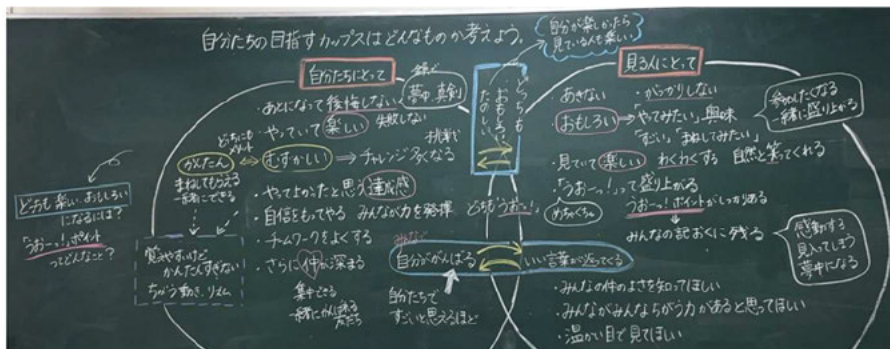 自分たちの目指すカップスはどんなものか考えよう。
自分が楽しかったら
見ている人も楽しい
自分たちにとって
全員で
夢中、真剣
・あとになって後悔しない
失敗しない
・やっていて楽しい
挑戦
どちらにも
メリット
かんたん
むずかしい
チャレンジ多くなる
まねしてもらえる
一緒にできる
・やってよかったと思う達成感
・自信をもってやる みんなが力を発揮
・チームワークをよくする
・さらに仲が深まる
集中できる
一緒にがんばれる
友だち
どっちも楽しい、おもしろい
になるには?
「うおーっ!」ポイント
ってどんなこと?
覚えやすいけど
かんたんすぎない
ちがう動き、リズム
どっちも
おもしろい
たのしい
どちらもうおーっ!
みんなで
自分ががんばる
いい言葉が返ってくる
自分たちで
すごいと思えるほど
見る人にとって
・あきない
・がっかりしない
おもしろい
「やってみたい」興味
「すごい」「まねしてみたい」
参加したくなる
一緒に盛り上がる
・見ていて楽しい わくわくする 自然と笑ってくれる
・「うおーっ!」って盛り上がる
めちゃくちゃ
うおーっ!ポイントがしっかりある
みんなの記おくに残る
感動する
見入ってしまう
夢中になる
・みんなの仲のよさを知ってほしい
・みんながみんなちがう力があると思ってほしい
・温かい目で見てほしい